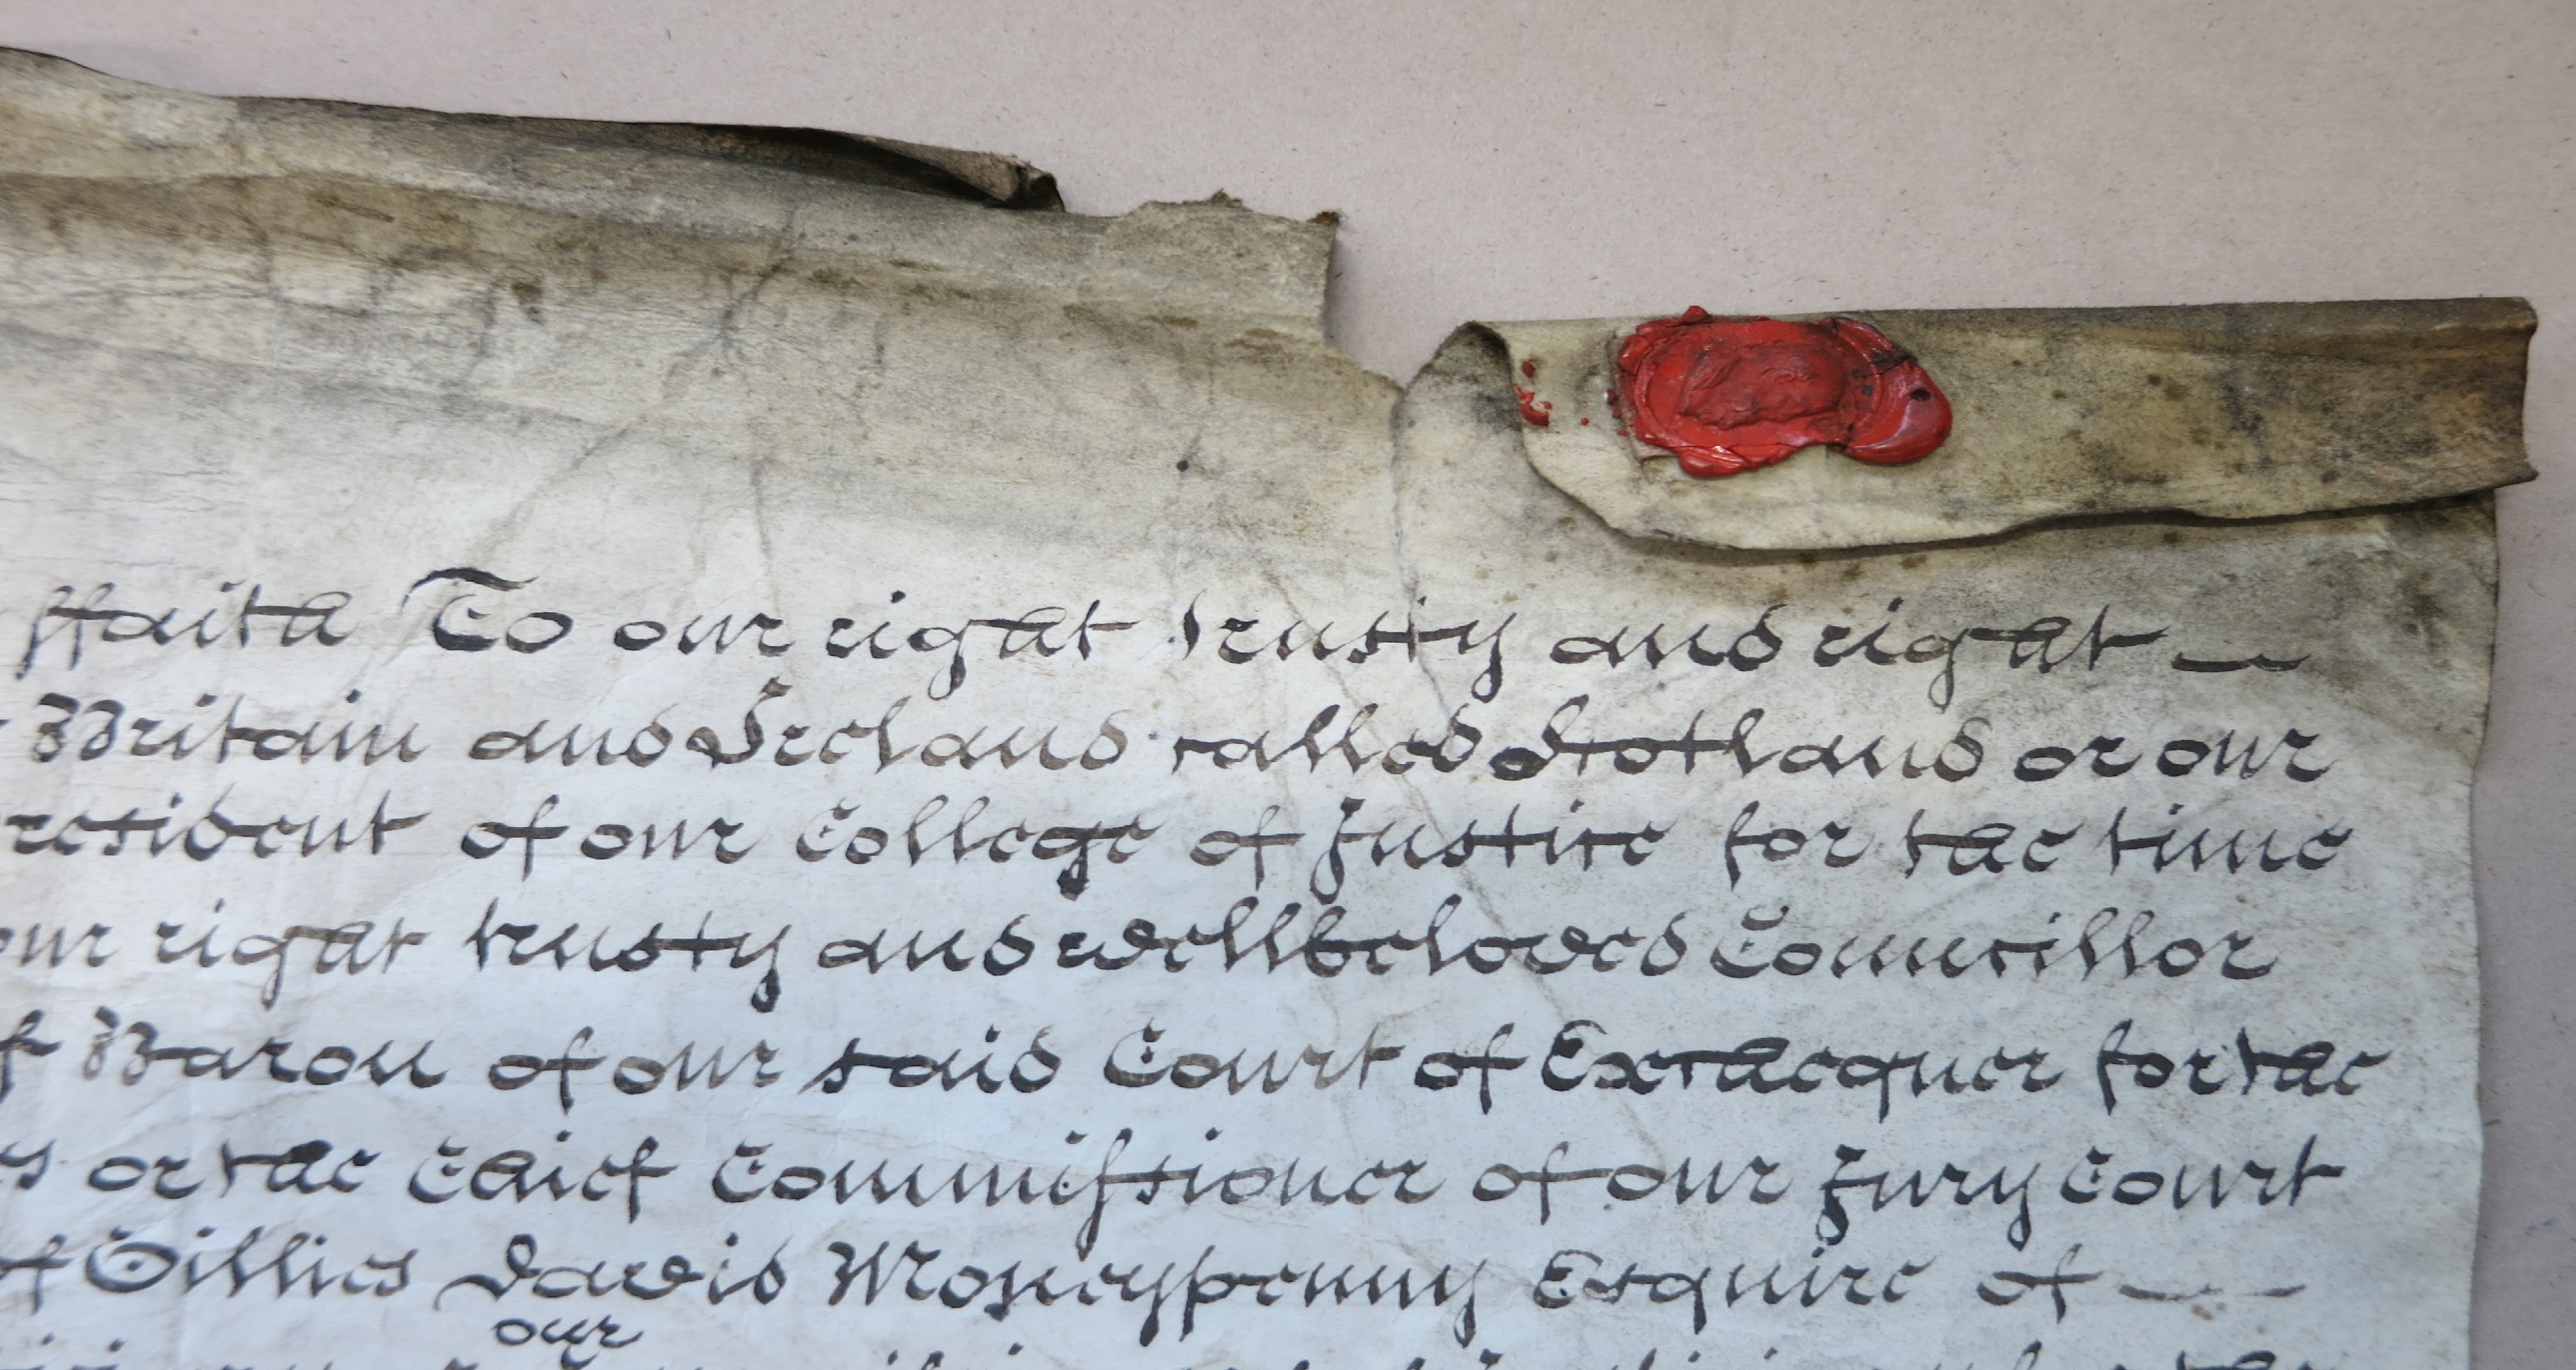 ffaith To our right trusty and right
Britain and Ireland called Scotland or our
resident of our College of Justice for the time
our right trusty and wellbeloved Councillor
Baron of our said Court of Exchequer for the
or the Chief Commissioner of our Jury Court
of Gillies David Moneypenny Esquire of
our